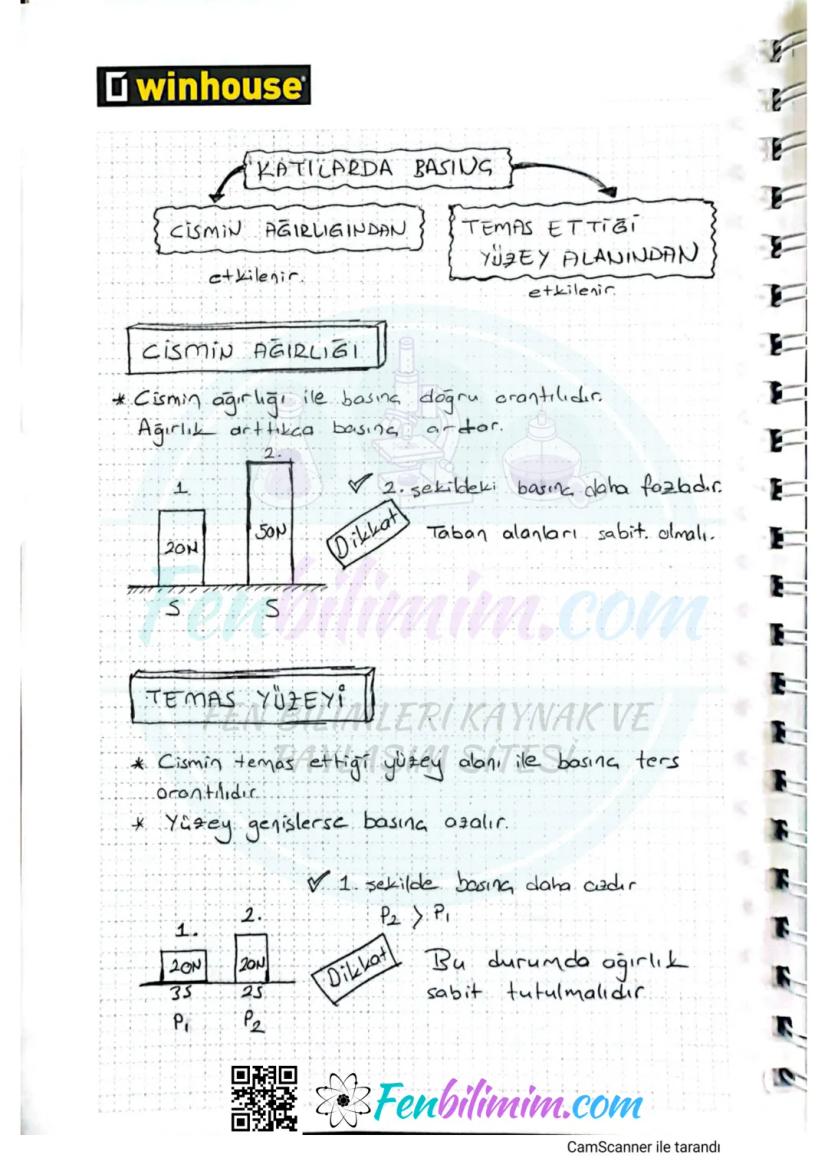 winhouse
KATILARDA BASINÇ
CİSMİN AĞIRLIĞINDAN
etkilenir.
TEMAS ETTİĞİ
YÜZEY ALANINDAN
etkilenir.
CİSMİN AĞIRLIĞI
* Cismin ağırlığı ile basınç doğru orantılıdır.
Ağırlık arttıkca basınç artar.
1.
2.
20N
50N
S
S
✓ 2. şekildeki basınç daha fazladır.
Dikkat
Taban alanları sabit olmalı.
Fenbilimim.com
TEMAS YÜZEYİ
FEN BİLİMLERİ KAYNAK VE
PAYLAŞIM SİTESİ
* Cismin temas ettiği yüzey alanı ile basınç ters
orantılıdır.
* Yüzey genişlerse basınç azalır.
✓ 1. şekilde basınç daha azdır
P₂ > P₁
1.
2.
20N
20N
3S
2S
P₁
P₂
Dikkat
Bu durumda ağırlık
sabit tutulmalıdır
Fenbilimim.com
CamScanner ile tarandı